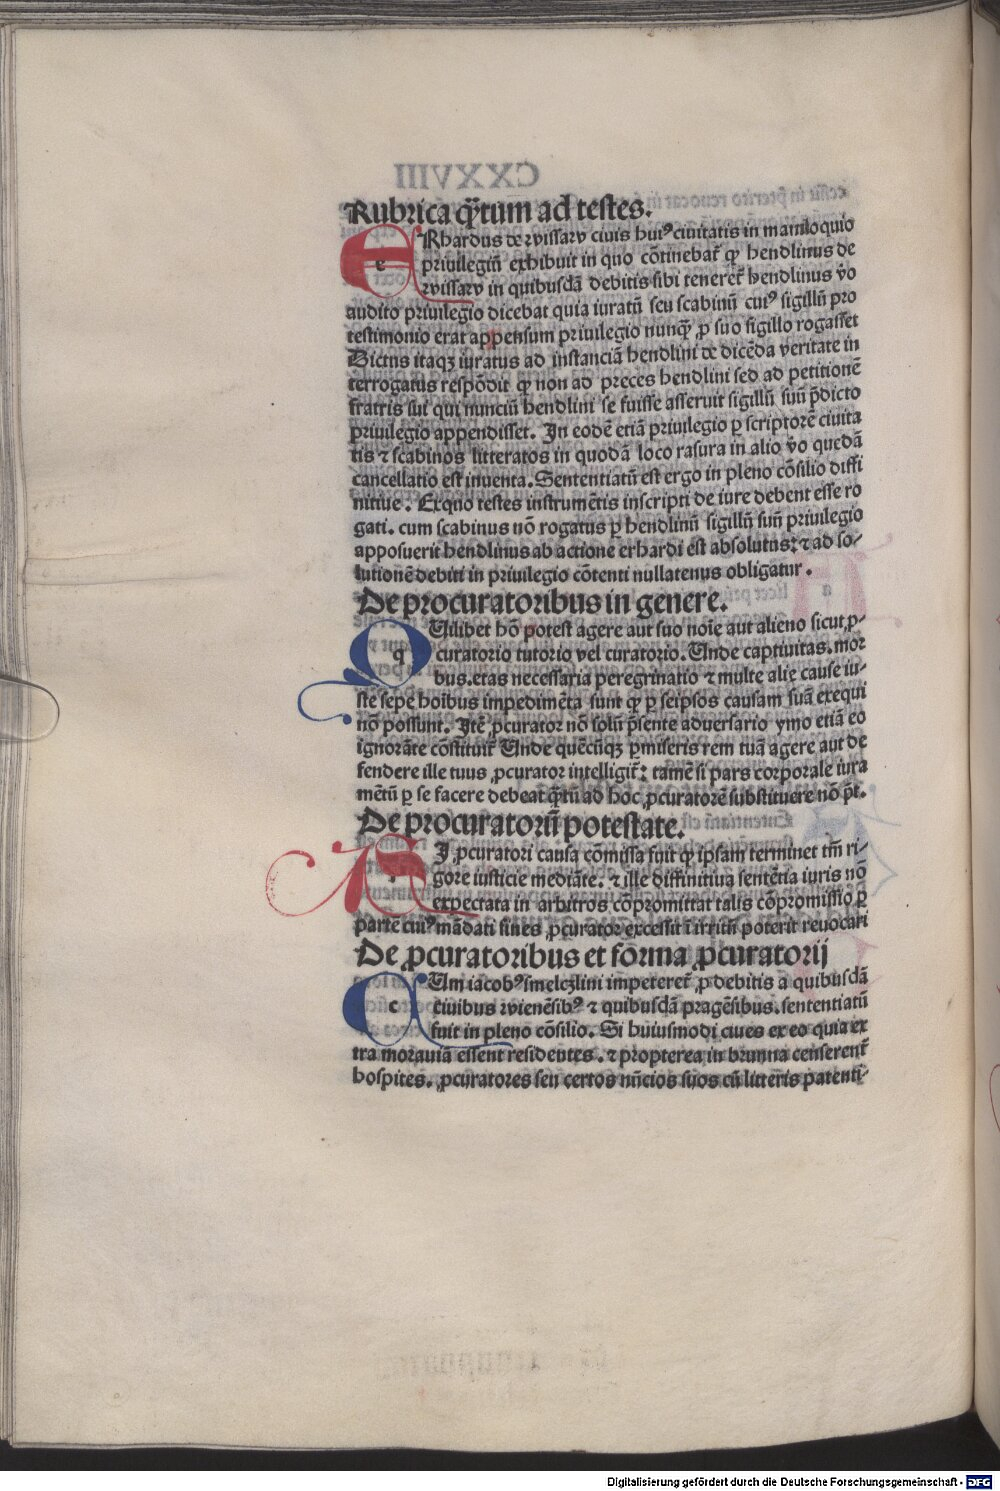 Rubrica q̄rtum ad testes.
ERhardus de wissaw civis huiꝰ civitatis in mamloquio
privilegiū exhibuit in quo cōtinebat̄ qꝫ hendlinus de
wissaw in quibusdā debitis sibi teneret̄ hendlinus v̄o
audito privilegio dicebat quia iuratū seu scabinū cuiꝰ sigillū pro
testimonio erat appensum privilegio nunqꝫ ꝑ suo sigillo rogasset
Dictus itaqꝫ iuratus ad instanciā hendlini de dicēda veritate in
terrogatus respōdit qꝫ non ad preces hendlini sed ad petitionē
fratris sui qui nunciū hendlini se fuisse asseruit sigillū suū p̄dicto
privilegio appendisset. In eodē etiā privilegio ꝑ scriptorē civita
tis ⁊ scabinos litteratos in quodā loco rasura in alio v̄o quedā
cancellatio est inventa. Sententiatū est ergo in pleno cōsilio diffi
nitive. Exquo testes instrumētis inscripti de iure debent esse ro
gati. cum scabinus nō rogatus ꝑ hendlinū sigillū suū privilegio
apposuerit hendlinus ab actione erhardi est absolutus: ⁊ ad so-
lutionē debiti in privilegio cōtenti nullatenus obligatur.
De procuratoribus in genere.
QUilibet hō potest agere aut suo noīe aut alieno sicut ꝓ-
curatorio tutorio vel curatorio. Unde captivitas. mor
bus. etas necessaria peregrinatio ⁊ multe alie cause iu-
ste sepe hoībus impedimēta sunt qꝫ ꝑ seipsos causam suā exequi
nō possunt. Itē ꝓcurator nō solū p̄sente adversario ymo etiā eo
ignorāte cōstituit̄ Unde quēcūqꝫ ꝑmiseris rem tuā agere aut de
fendere ille tuus ꝓcurator intelligit̄: tamē si pars corporale iura
mētū ꝑ se facere debeat q̄tū ad hoc ꝓcuratorē substituere nō p̄t.
De procuratorū potestate.
SI ꝓcuratori causa cōmissa fuit qꝫ ipsam terminet tm̄ ri-
gore iusticie mediāte. ⁊ ille diffinitiva sentētia iuris nō
expectata in arbitros cōpromittat talis cōpromissio ꝑ
parte cuiꝰ mādati fines ꝓcurator excessit ī irritū poterit revocari
De ꝓcuratoribus et forma ꝓcuratorij
CUm iacobꝰ smelczlini impeteret̄ ꝓ debitis a quibusdā
civibus wienēsibꝰ ⁊ quibusdā pragēsibus. sententiatū
fuit in pleno cōsilio. Si huiusmodi cives ex eo quia ex
tra moraviā essent residentes. ⁊ propterea in brunna censerent̄
hospites. ꝓcuratores seu certos nūcios suos cū litteris patenti-
Digitalisierung gefördert durch die Deutsche Forschungsgemeinschaft - DFG